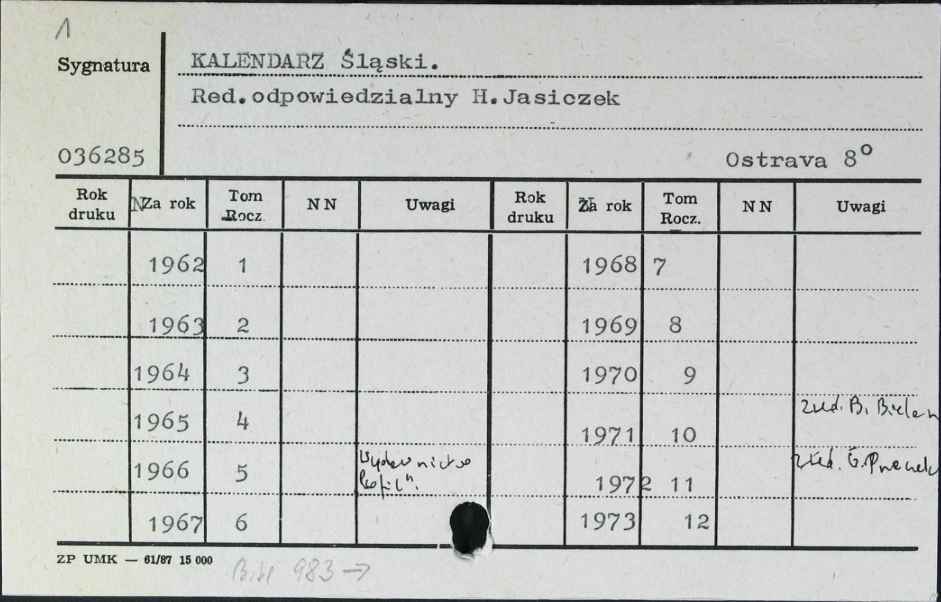 1
Sygnatura
KALENDARZ Śląski.
Red.odpowiedzialny H.Jasiczek
036285
Ostrava 8°
Rok druku Za rok Tom Rocz. NN Uwagi Rok druku Za rok Tom Rocz. NN Uwagi
1962 1 1968 7
1963 2 1969 8
1964 3 1970 9
1965 4 1971 10 zred. B.
1966 5 1972 11 zred.
1967 6 1973 12
ZP UMK — 61/87 15 000
983 →